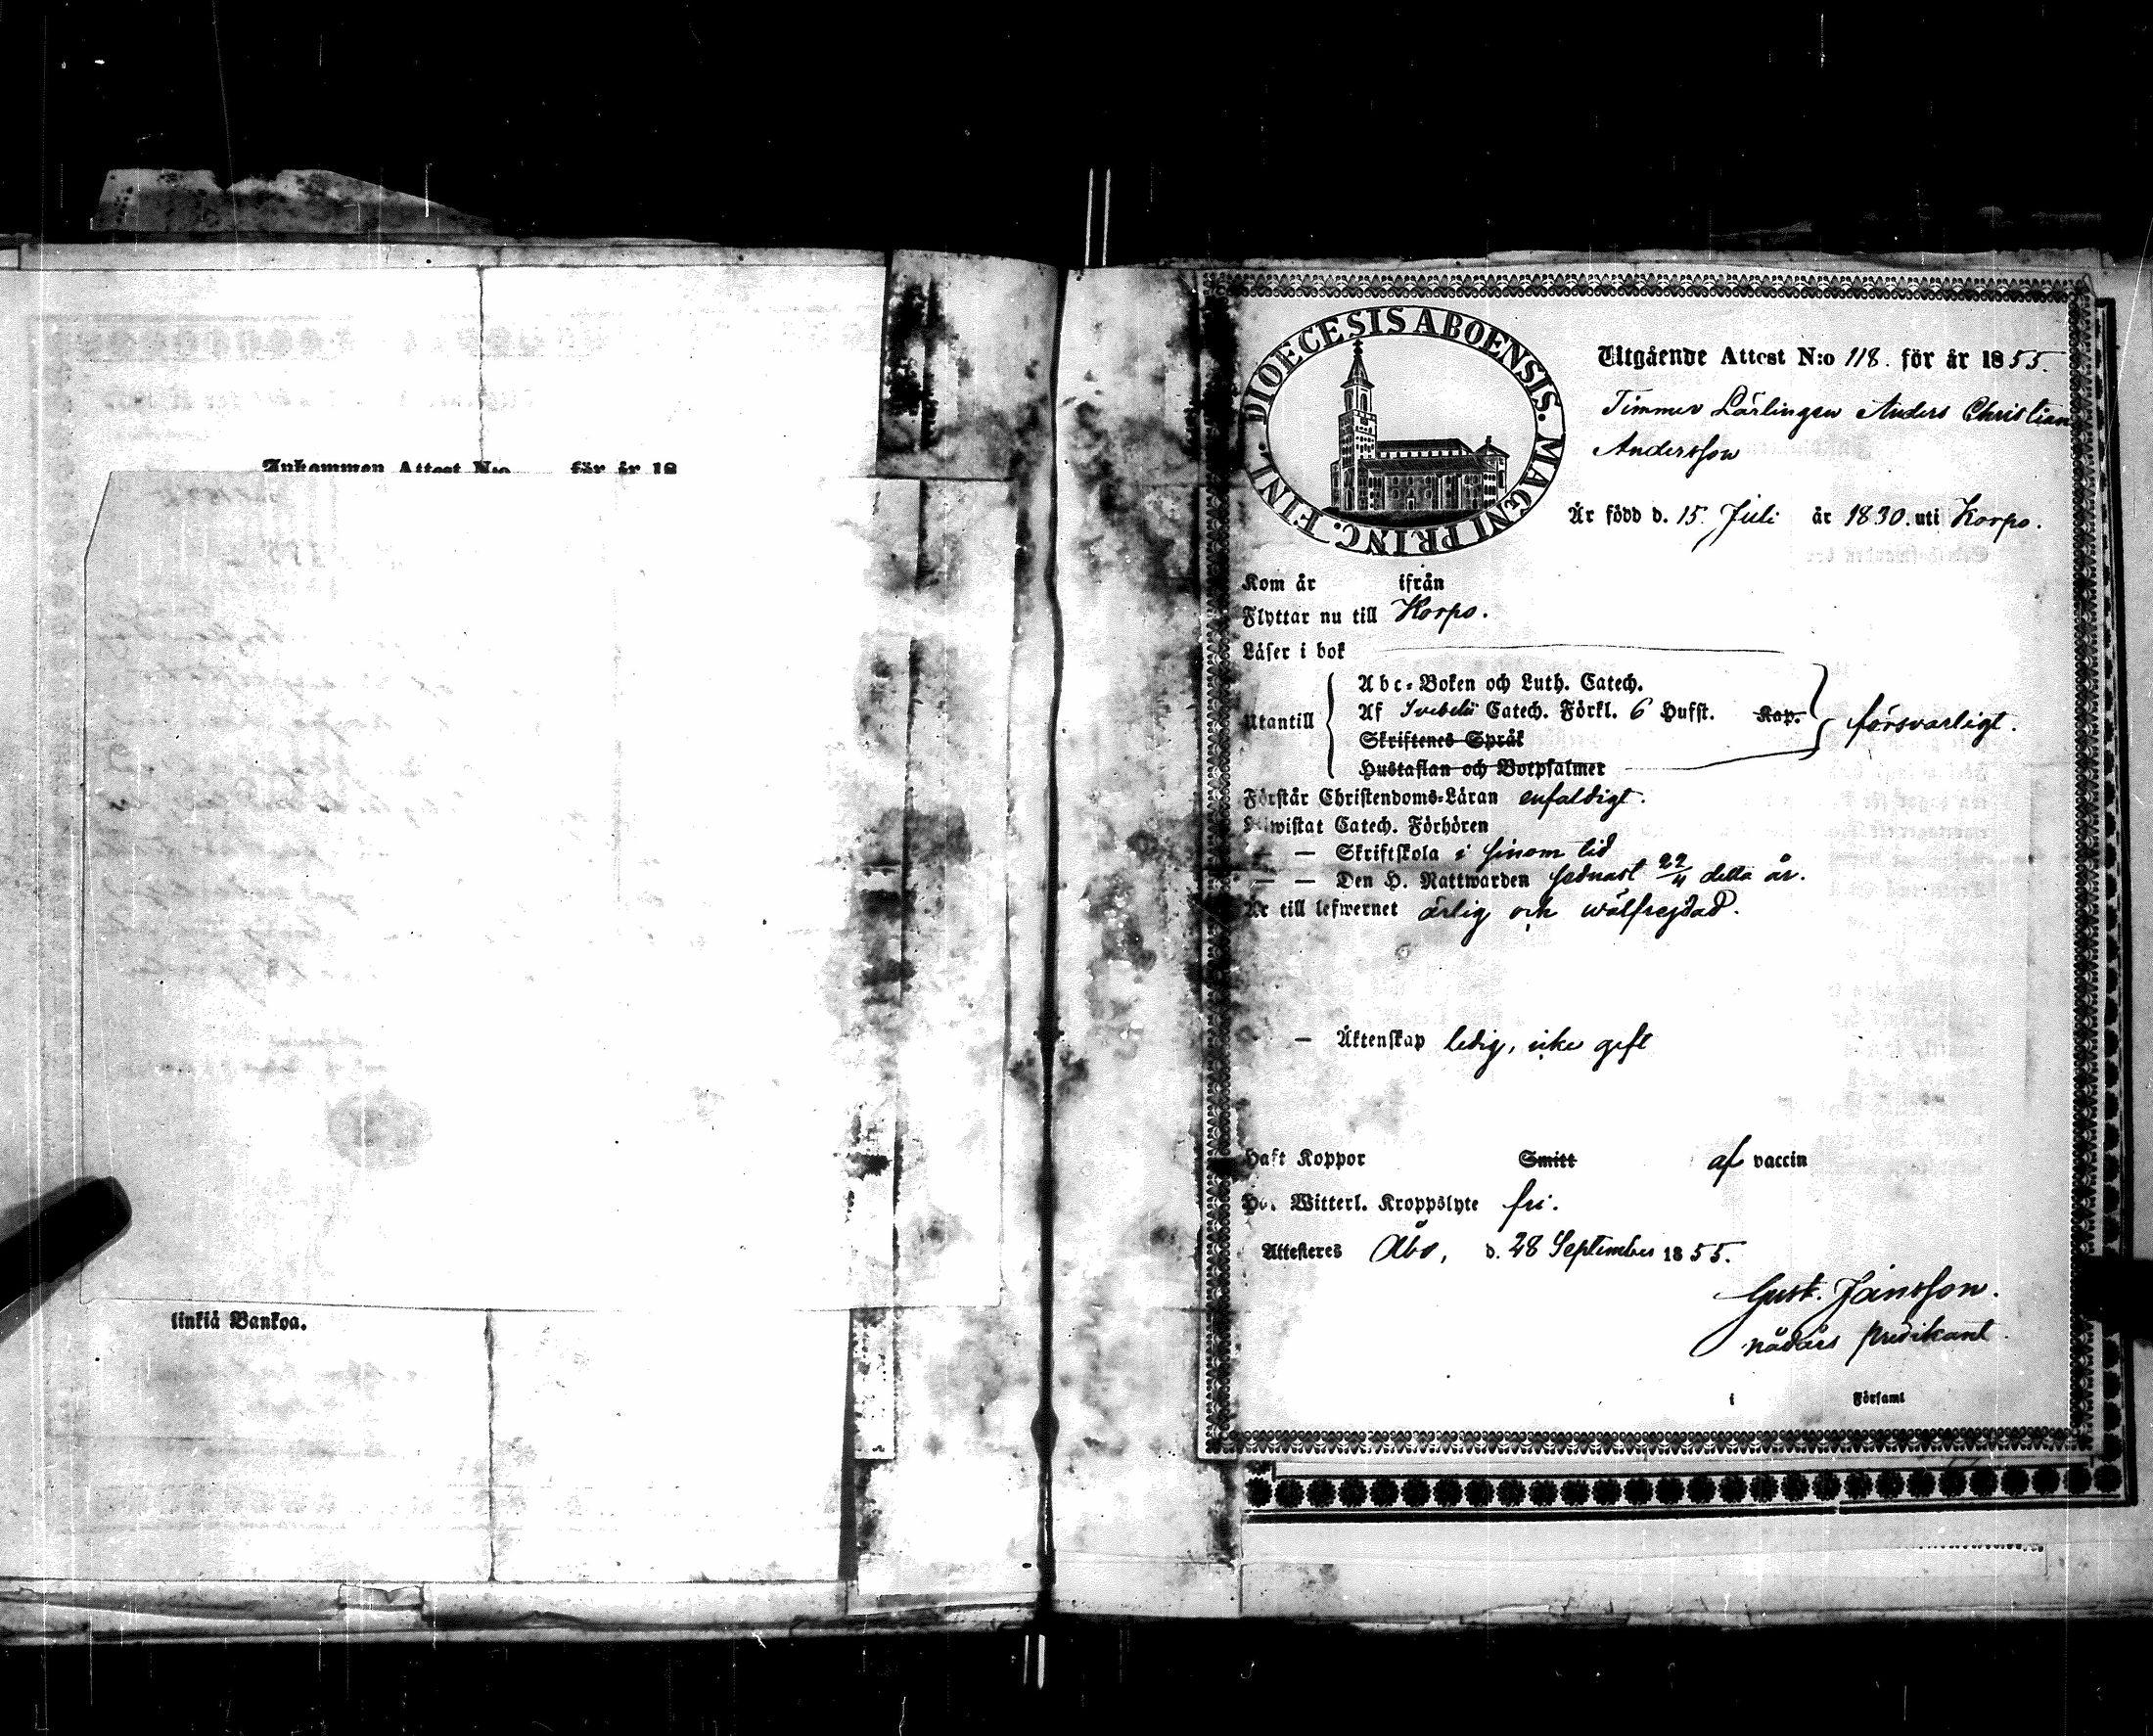 Inkommen Attest N:o för år 18
linkiä Bankoa.
DIOECESIS ABOENSIS. MAGNI PRINC. FINL.
Utgående Attest N:o 118. för år 1855.
Timmer Lärlingen Anders Christian
Andersson
Är född d. 15. Juli år 1830. uti Korpo.
Kom år ifrån
Flyttar nu till Korpo.
Läser i bok
Utantill
Abc-Boken och Luth. Catech.
Af Svebelii Catech. Förkl. 6 Hufst. Kap.
Skriftenes Språk
Hustaflan och Botpsalmer
försvarligt.
Förstår Christendoms-Läran enfaldigt.
Biwistat Catech. Förhören
— — Skriftskola i sinom tid
— — Den H. Nattwarden sednast 22/4 detta år.
Är till lefwernet ärlig och wälfrejdad.
— Äktenskap ledig, icke gift
Haft Koppor Smitt af vaccin
Witterl. Kroppslyte fri.
Attesteres Åbo, d. 28 September 1855.
Gust. Jansson.
nådårs predikant.
i Församl